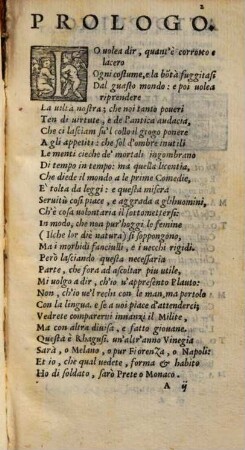 2
PROLOGO.
IO volea dir, quant'è corrotto e
lacero
Ogni costume, e la bōtà fuggitasi
Dal guasto mondo: e poi volea
riprendere
La viltà nostra; che noi tanto poueri
Ten di uirtute, e de l'antica audacia,
Che ci lasciam su'l collo il giogo ponere
A gli appetiti: che sol d'ombre inutili
Le menti cieche de' mortali ingombrano
Di tempo in tempo: ma quella licentia,
Che diede il mondo a le prime Comedie,
E' tolta da leggi: e questa misera
Seruitù così piace, e aggrada a gli huomini,
Ch'è cosa volontaria il sottometterſi:
In modo, che non pur hoggi le femine
(Il che lor diè natura) si soppongono,
Ma i morbidi fanciulli, e i uecchi rigidi.
Però lasciando questa necessaria
Parte, che fora ad ascoltar piu utile,
Mi uolgo a dir, ch'io u'appresento Plauto:
Non, ch'io ue'l rechi con le man, ma portolo
Con la lingua. e se a uoi piace d'attenderci;
Vedrete comparerui innanzi il Milite,
Ma con altra diuisa, e fatto giouane.
Questa è Rhagusi. un'altr'anno Vinegia
Sarà, o Melano, o pur Fiorenza, o Napoli:
Et io, che qual uedete, forma & habito
Ho di soldato, sarò Prete o Monaco.
A ij